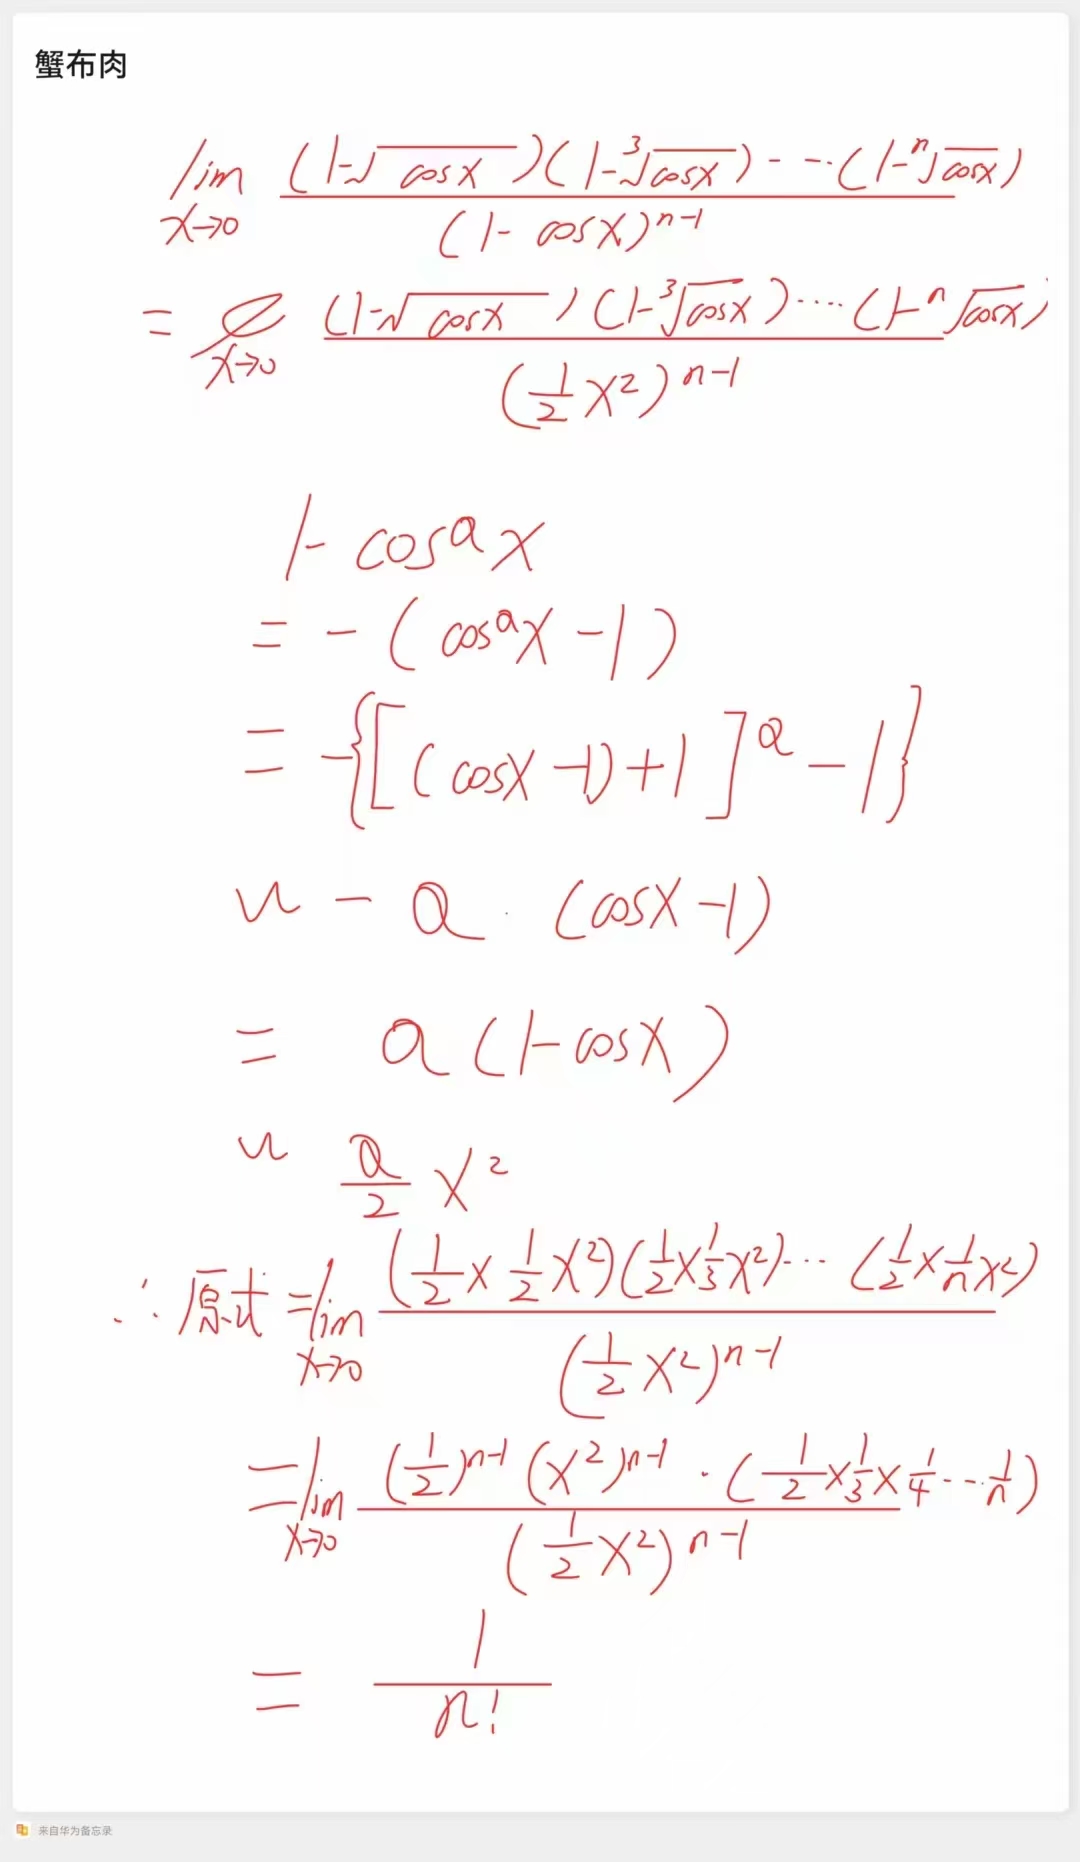 蟹布肉
lim x→0 (1-√cosx)(1-³√cosx)-···(1-ⁿ√cosx) / (1-cosx)ⁿ⁻¹
= x→0 (1-√cosx)(1-³√cosx)····(1-ⁿ√cosx) / (½x²)ⁿ⁻¹
1-cosᵃx
= -(cosᵃx-1)
= -{[(cosx-1)+1]ᵃ-1}
~ -a·(cosx-1)
= a(1-cosx)
~ a/2 x²
∴原式=lim x→0 (½×½x²)(½×⅓x²)···(½×1/n x²) / (½x²)ⁿ⁻¹
=lim x→0 (½)ⁿ⁻¹(x²)ⁿ⁻¹·(½×⅓×¼···1/n) / (½x²)ⁿ⁻¹
= 1/n!
来自华为备忘录